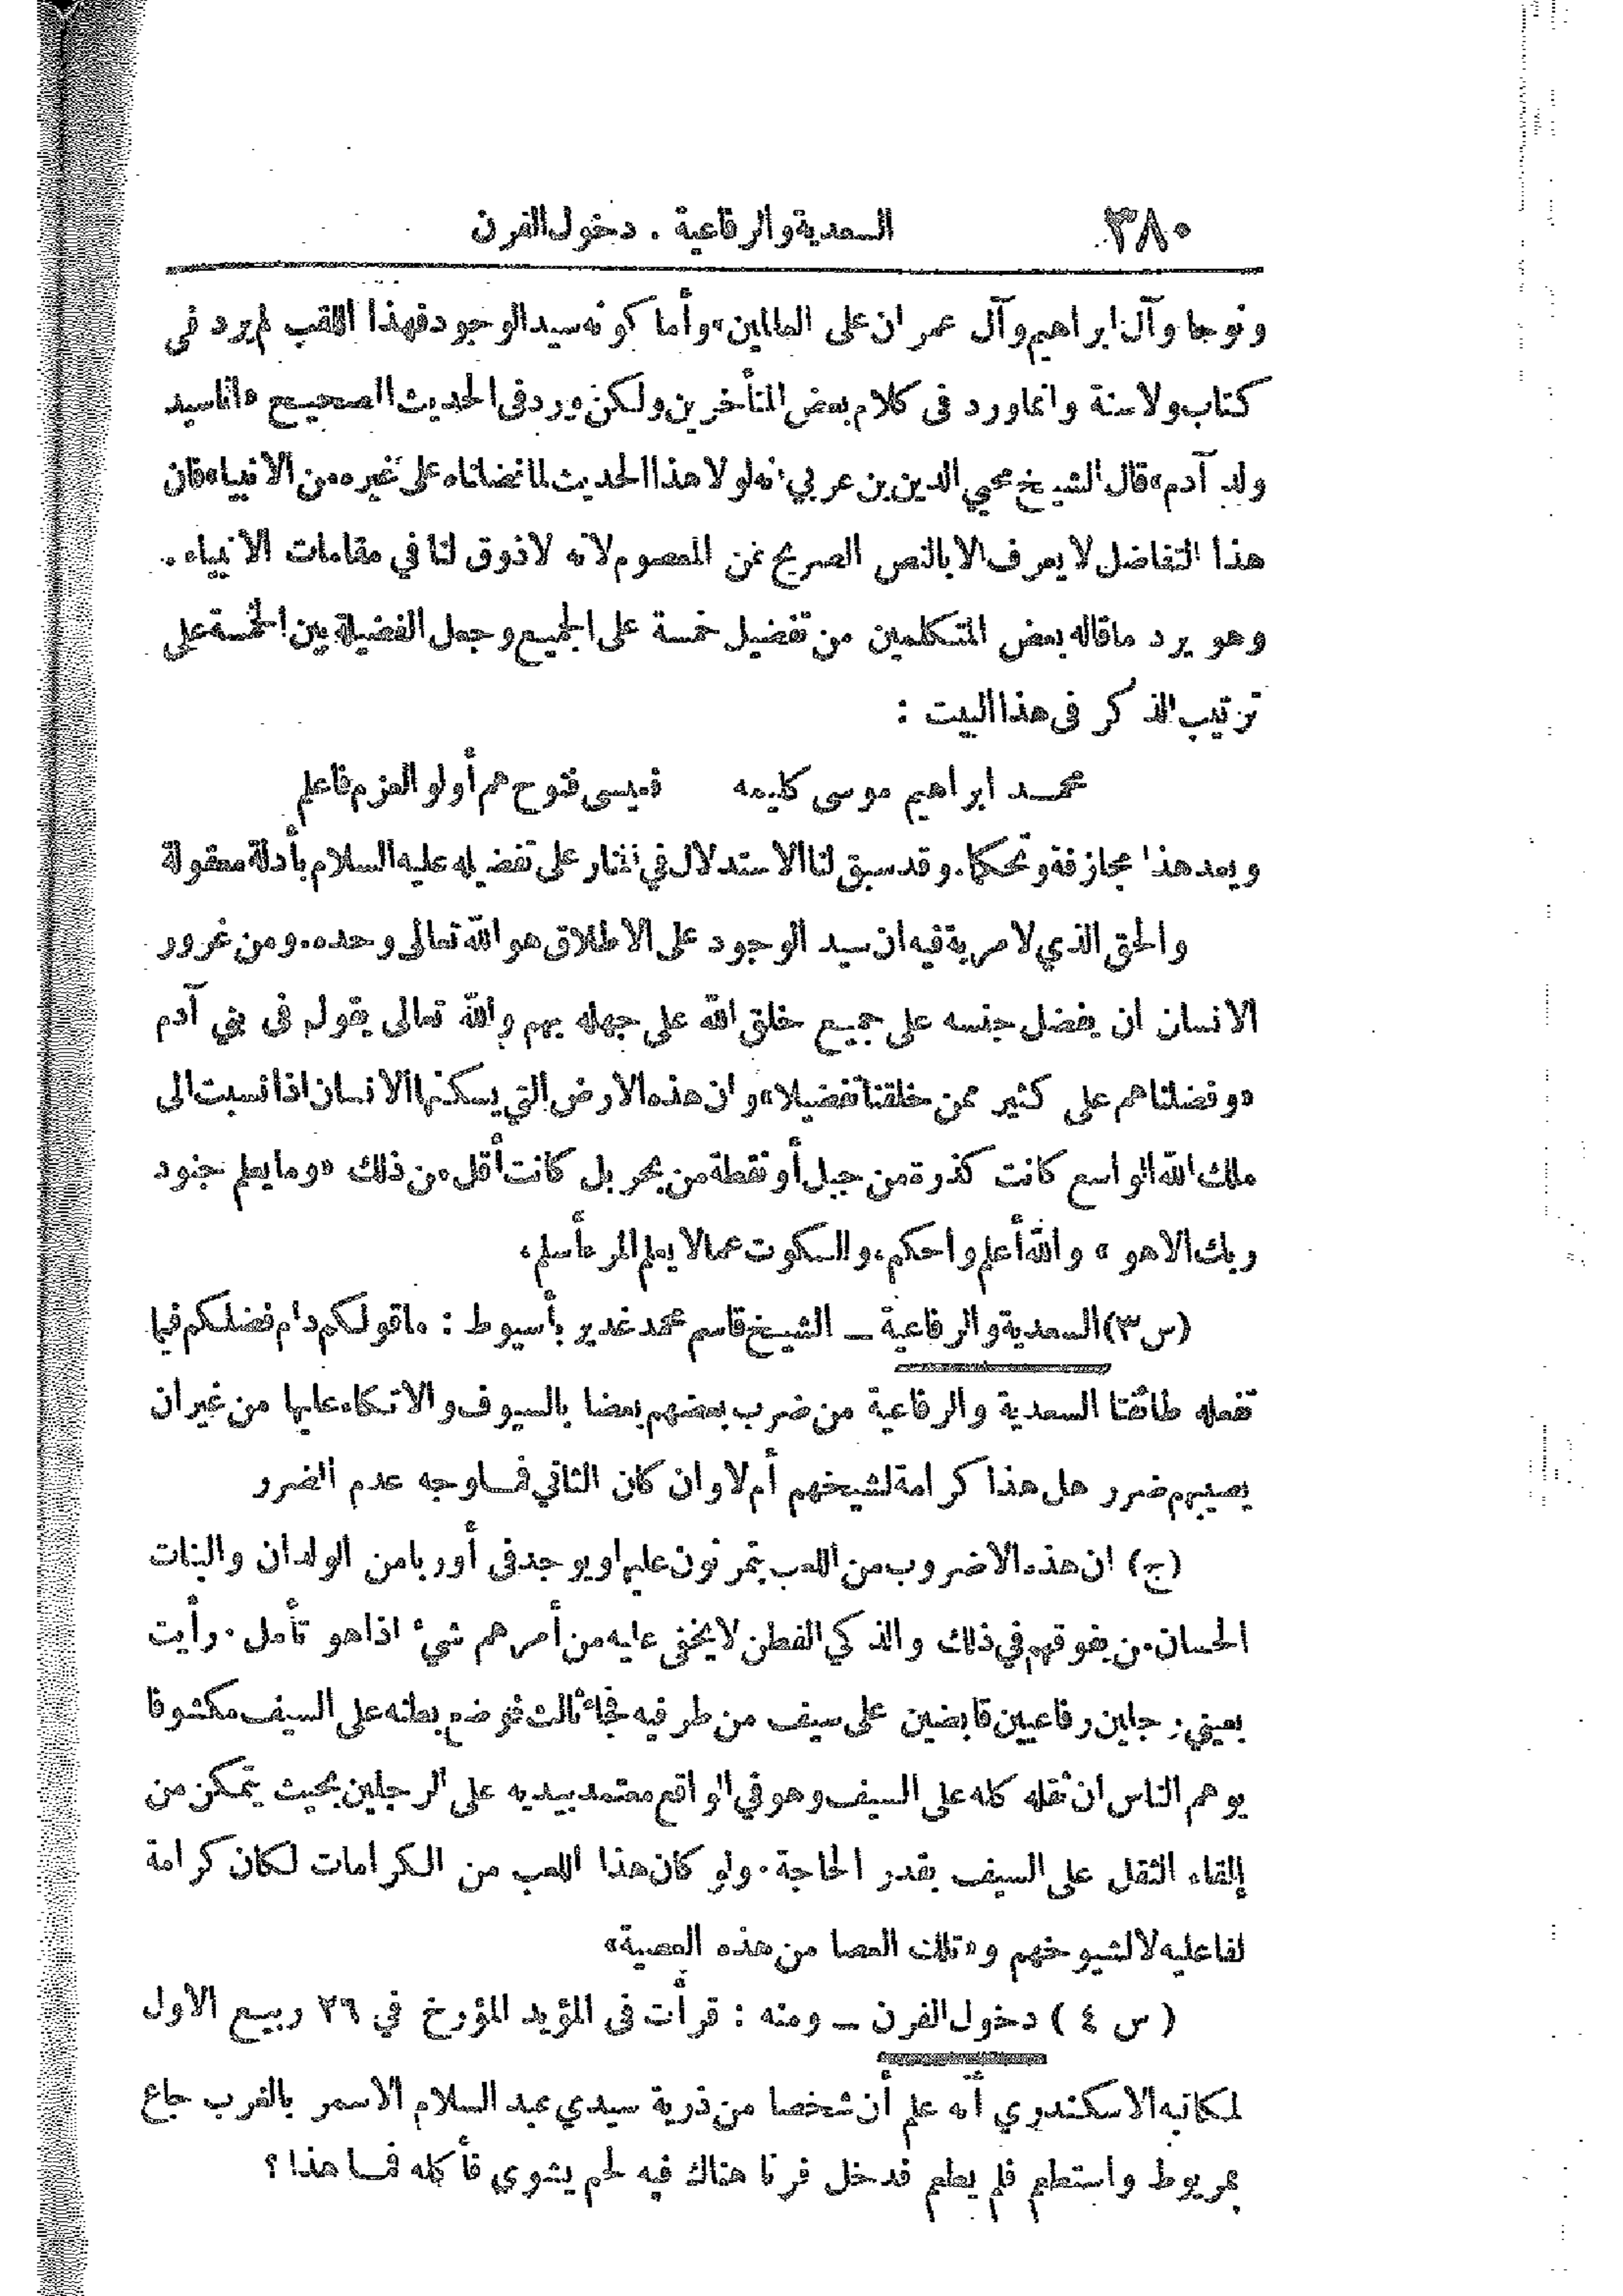 ٣٨٠ السعدية والرفاعية . دخول الفرن
ونوحا وآل ابراهيم وآل عمران على العالمين» وأما كونه سيد الوجود فهذا اللقب لم يرد في
كتاب ولا سنة وانما ورد في كلام بعض المتأخرين ولكن ورد في الحديث الصحيح «انا سيد
ولد آدم» قال الشيخ محيي الدين بن عربي انه لولا هذا الحديث لما فضلناه على غيره من الانبياء فان
هذا التفاضل لا يعرف الا بالنص الصريح عن المعصوم لانه لا ذوق لنا في مقامات الانبياء .
وهو يرد ما قاله بعض المتكلمين من تفضيل خمسة على الجميع وجعل الفضيلة بين الخمسة على
ترتيب الذكر في هذا البيت :
محمد ابراهيم موسى كليمه فعيسى فنوح هم أولو العزم فاعلم
ويعد هذا مجازفة وتحكما. وقد سبق لنا الاستدلال في المنار على تفضيله عليه السلام بأدلة معقولة
والحق الذي لا مرية فيه ان سيد الوجود على الاطلاق هو الله تعالى وحده. ومن غرور
الانسان ان يفضل جنسه على جميع خلق الله على جهله بهم والله تعالى يقول في بني آدم
«وفضلناهم على كثير ممن خلقنا تفضيلا» وان هذه الارض التي يسكنها الانسان اذا نسبت الى
ملك الله الواسع كانت كذرة من جبل أو نقطة من بحر بل كانت أقل من ذلك «وما يعلم جنود
ربك الا هو » والله أعلم وأحكم، والسكوت عما لا يعلم المرء أسلم.
(س ٣) السعدية والرفاعية ـ الشيخ قاسم محمد غدير بأسيوط : ما قولكم دام فضلكم فيما
تفعله طائفتا السعدية والرفاعية من ضرب بعضهم بعضا بالسيوف والاتكاء عليها من غير ان
يصيبهم ضرر هل هذا كرامة لشيخهم أم لا وان كان الثاني فما وجه عدم الضرر
(ج) ان هذه الا ضروب من اللعب يتمرنون عليها ويوجد في أوربا من الولدان والبنات
الحسان من يفوقهم في ذلك والذكي الفطن لا يخفى عليه من أمرهم شيء اذا هو تأمل . رأيت
بعيني رجلين رفاعيين قابضين على سيف من طرفيه فجاء ثالث فوضع بطنه على السيف مكشوفا
يوهم الناس ان ثقله كله على السيف وهو في الواقع معتمد بيديه على الرجلين بحيث يتمكن من
إلقاء الثقل على السيف بقدر الحاجة . ولو كان هذا اللعب من الكرامات لكان كرامة
لفاعليه لا لشيوخهم و «تلك العصا من هذه العصية»
( س ٤ ) دخول الفرن ـ ومنه : قرأت في المؤيد المؤرخ في ٢٦ ربيع الاول
لمكاتبه الاسكندري أنه علم أن شخصا من ذرية سيدي عبد السلام الاسمر بالغرب جاع
بمريوط واستطعم فلم يطعم فدخل فرنا هناك فيه لحم يشوي فأكله فما هذا ؟